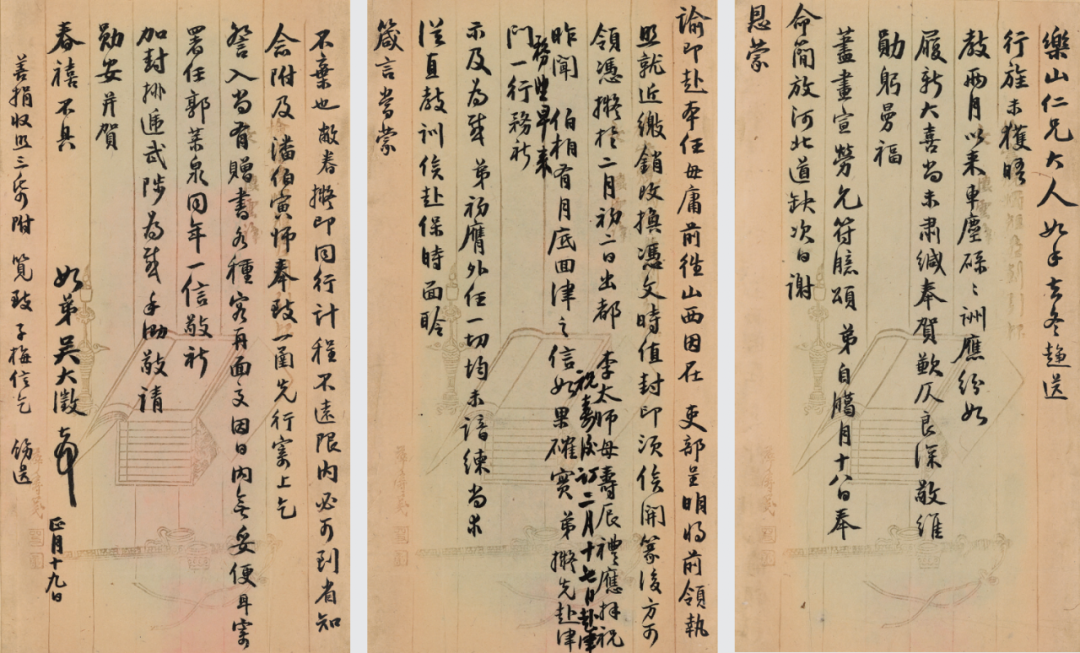 樂山仁兄大人如手去冬趨送
行旌未獲晤
教兩月以來車塵碌碌酬應紛如
履新大喜尚未肅緘奉賀歉仄良深敬維
勛躬曼福
藎畫宣勞允符臆頌弟自臘月十八日奉
命簡放河北道缺次日謝
恩蒙
諭即赴本任毋庸前往山西因在吏部呈明將前領執
照就近繳銷改換憑文時值封印須俟開篆後方可
領憑擬於二月初二日出都李太師母壽辰禮應拜祝
祝壽後訂二月十七日赴津
昨聞伯相有月底回津之信如果確實弟擬先赴津
門一行務祈
務望早來
示及為感弟初膺外任一切均未諳練尚求
從直教訓俟赴保時面聆
箴言當蒙
不棄也敝眷擬即同行計程不遠限內必可到省知
念附及潘伯寅師奉致一函先行寄上乞
詧入尚有贈書各種容再面交因日內無妥便耳寄
署任郭萊泉同年一信敬祈
加封排遞武陟為感手泐敬請
勛安并賀
春禧不具
如弟吳大澂頓首
正月十九日
善捐收照三紙附覽致子梅信乞飭送